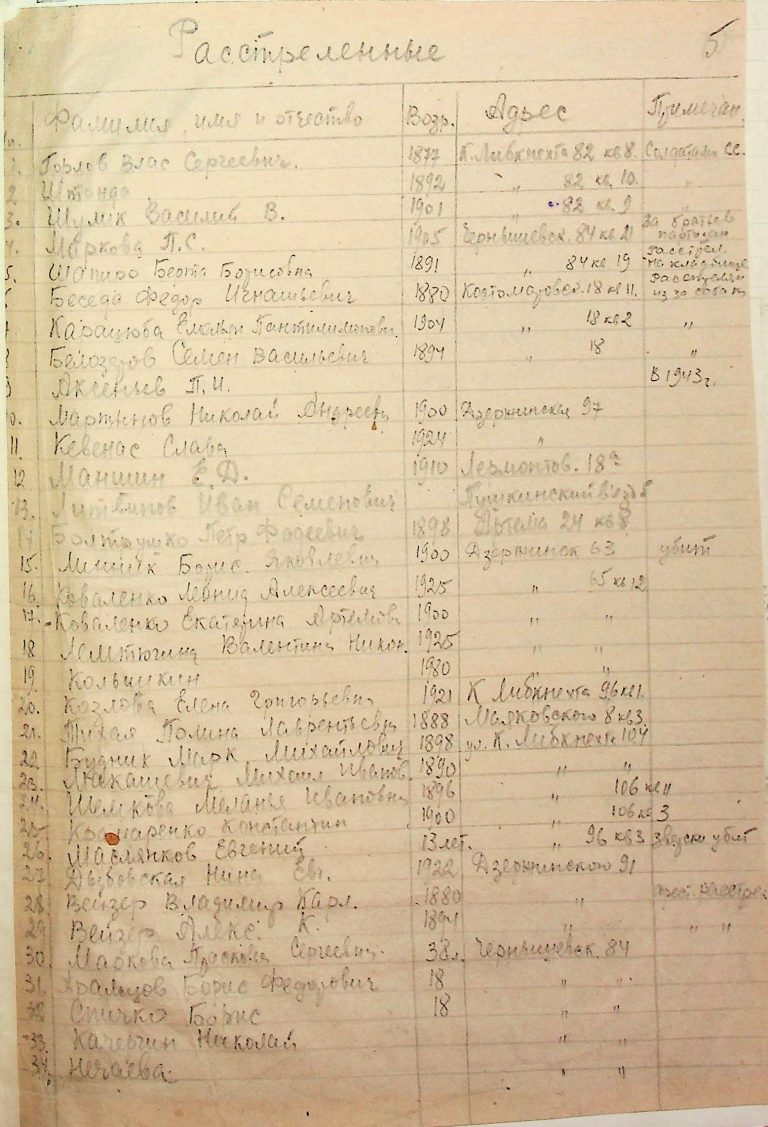 Расстреленные 5
Фамилия, имя и отчество Возр. Адрес Примечан.
1. Горлов Влас Сергеевич. 1877 К. Либкнехта 82 кв 8. Солдатами СС.
2 Штонда 1892 " 82 кв. 10. "
3. Шулик Василий В. 1901 " 82 кв. 9 "
4. Маркова П.С. 1905 Чернышевск. 84 кв 21 За братьев партизан
5. Шапиро Берта Борисовна 1891 " 84 кв 19 расстрел. на кладбище
6 Беседа Федор Игнатьевич 1880 Костомаровск. 18 кв 11. Расстрелян из за собаки
7 Карацюба Емельян Пантилимонович. 1904 " 18 кв 2 "
8 Белозоров Семен Васильевич 1894 " 18 "
9 Аксеньев П.И. В 1943 г.
10. Мартынов Николай Андреев 1900 Дзержинская 97
11. Кевенас Слава 1924 "
12 Маншин Е.Д. 1910 Лермонтов. 18а
13. Литвинов Иван Семенович Пушкинский в'езд 6
14 Болтушко Петр Фадеевич 1898 Артема 24 кв 8
15. Минник Борис Яковлевич 1900 Дзержинск 63 убит
16. Коваленко Леонид Алексеевич 1925 " 65 кв 12
17. Коваленко Екатерина Артемова 1900 " "
18 Лемтюгина Валентина Никол. 1925 " "
19 Колышкин 1980 "
20. Козлова Елена Григорьевна 1921 К Либкнехта 96 кв 1.
21. Тихая Полина Лаврентьевна 1888 Маяковского 8 кв 3.
22. Будник Марк Михайлович 1898 ул. К. Либкнехт. 104
23. Макашевич Михаил Иванов. 1890 " "
24. Шелкова Меланья Ивановна 1896 " 106 кв "
25. Крамаренко Константин 1900 " 106 кв 3
26. Маслянков Евгений 13 лет. " 96 кв 3 Зверски убит
27 Дыбовская Нина Евг. 1922 Дзержинского 91
28 Вейзер Владимир Карл. 1880 " расстрел
29 Вейзер Алекс. К. 1894 " " "
30. Маркова Прасковья Сергеевна. 38 л. Чернышевск. 84
31. Храмцов Борис Федорович 18 " "
32 Спичко Борис 18 " "
33. Качергин Николай " "
34. Нечаева. " "